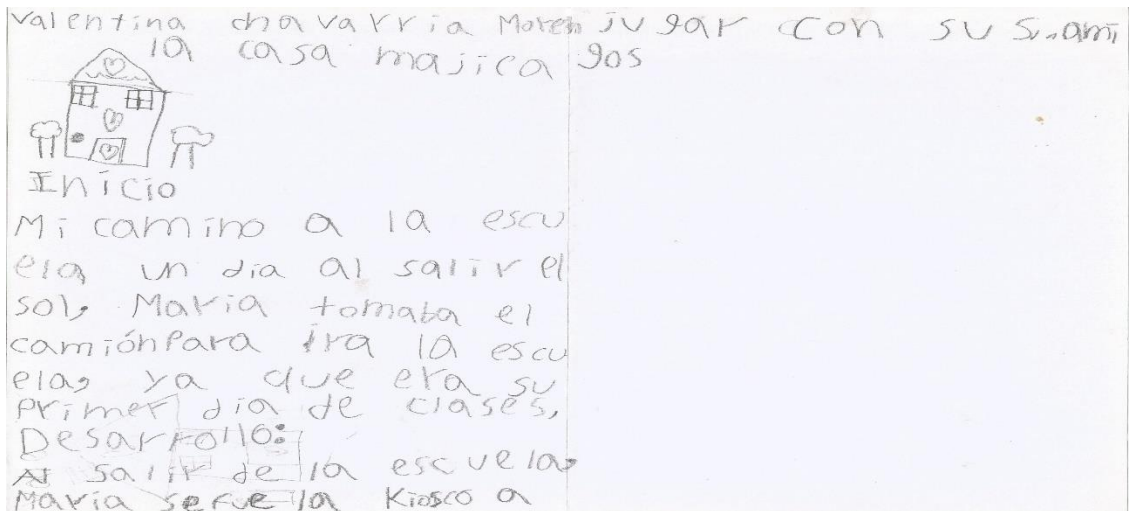 Valentina chavarria Moren
la casa majica
Inicio
Mi camino a la escu
ela, un dia al salir el
sol, Maria tomaba el
camiónPara ira la escu
ela, ya que era su
Primer dia de clases,
Desarrollo:
Al salir de la escuela,
Maria se fue la Kiosco a
jugar con su s.ami
gos